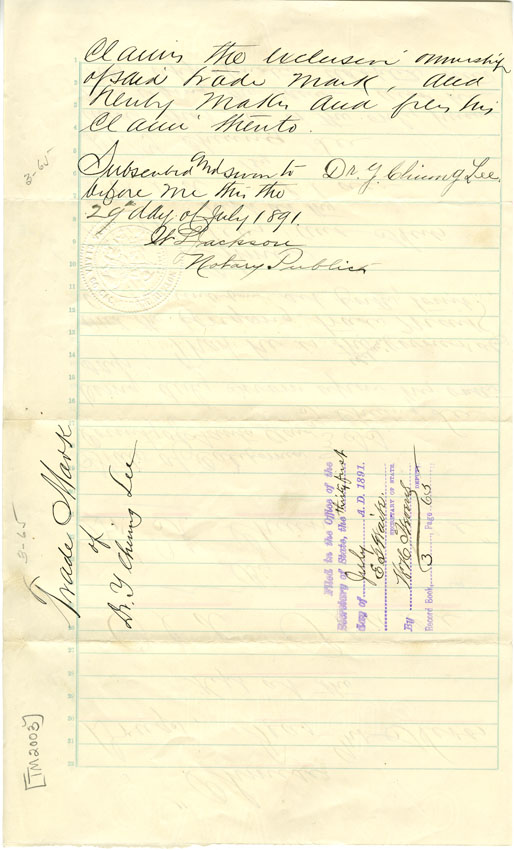 Claims the exclusive ownership
of said trade mark, and
hereby makes and files his
claim thereto.
Subscribed and sworn to
before me this the
29th day of July 1891.
Dr. Y. Chiung Lee.
Jackson
Notary Public
3-65
Trade Mark
of
Dr. Y Chiung Lee
3-65
[TM2003]
Filed in the Office of the
Secretary of State, the thirty first
day of July A. D. 1891.
E G Waite
SECRETARY OF STATE.
By
DEPUTY
Record Book, 3 Page 65
1
2
3
4
5
6
7
8
9
10
11
12
13
14
15
16
17
18
19
20
21
22